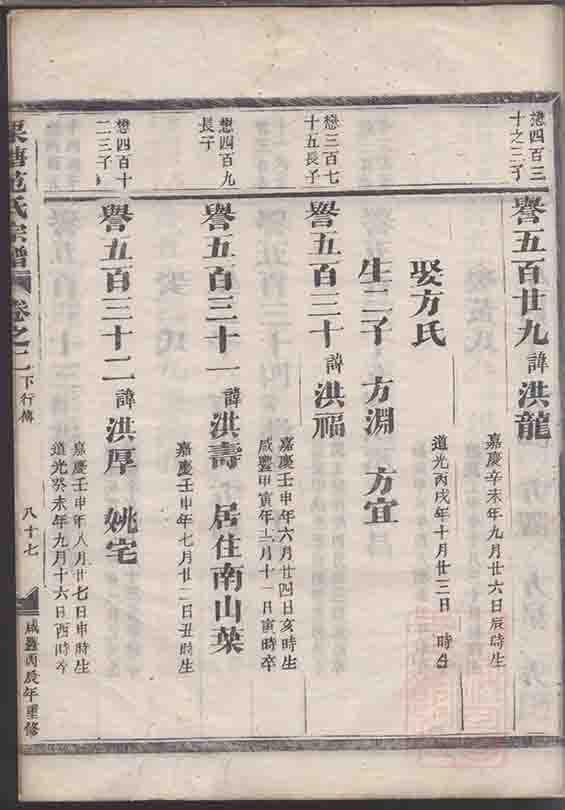 懋四百三
十之二子
譽五百廿九 諱洪龍
嘉慶辛未年九月廿六日辰時生
娶方氏
道光丙戌年十月廿三日 時生
生二子 方淵 方宜
懋三百七
十五長子
譽五百三十 諱洪福
嘉慶壬申年六月廿四日亥時生
咸豐甲寅年十二月十一日寅時卒
懋四百九
長子
譽五百三十一 諱洪壽 居住南山葉
嘉慶壬申年七月廿二日丑時生
懋四百十
二三子
譽五百三十二 諱洪厚 姚宅
嘉慶壬申年八月廿七日申時生
道光癸未年九月十六日酉時卒
塘范氏宗譜 卷之二 下行傳 八十七 咸豐丙辰年重修